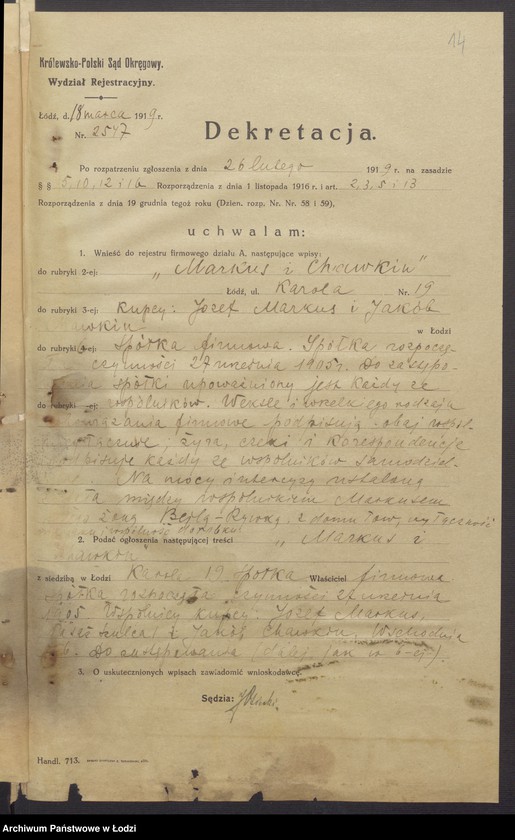 14
Królewsko-Polski Sąd Okręgowy.
Wydział Rejestracyjny.
Łódź, d. 18 marca 1919 r.
Nr. 2547
Dekretacja.
Po rozpatrzeniu zgłoszenia z dnia 26 lutego 1919 r. na zasadzie
§ § 5, 10, 12 i 16 Rozporządzenia z dnia 1 listopada 1916 r. i art. 2, 3, 5 i 13
Rozporządzenia z dnia 19 grudnia tegoż roku (Dzien. rozp. Nr. Nr. 58 i 59),
uchwalam:
1. Wnieść do rejestru firmowego działu A. następujące wpisy:
do rubryki 2-ej: „Markus i Chawkin"
Łódź, ul. Karola Nr. 19
do rubryki 3-ej: Kupcy: Józef Markus i Jakób
w Łodzi
do rubryki 4-ej: Spółka firmowa. Spółka rozpoczę-
czynności 27 września 1905 r. Do zastępo-
spółki upoważniony jest każdy ze
do rubryki spólników. Weksle i wszelkiego rodzaju
firmowe podpisują obaj
żyra, czeki i korespondencję
każdy ze wspólników samodziel-
Na mocy intercyzy ustaloną
między wspólnikiem Markusem
żoną Berlą-Rywką, z domu wyłączność
wspólność dorobku.
2. Podać ogłoszenia następującej treści „Markus i
z siedzibą w Łodzi Karola 19 Spółka Właściciel firmowa
Spółka rozpoczęła czynności 27 września
1905 Wspólnicy kupcy: Józef Markus,
i Jakób Chawkin, Wschodnia
Do zastępowania (dalej jak w
3. O uskutecznionych wpisach zawiadomić wnioskodawcę.
Sędzia:
Handl. 713.
Archiwum Państwowe w Łodzi